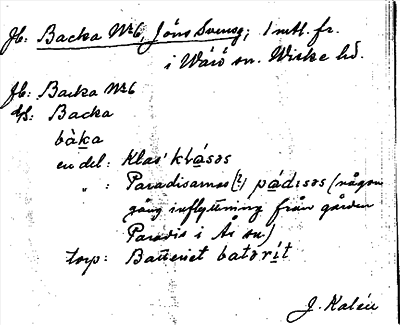 Jb: Backa No 6, Jöns Svensg; 1 mtl. fr.
i Wärö sn. Wiske hd.
Jb: Backa No 6
ds: Backa
bàka
en del: Klas' klásəs
" : Paradisarnas(?) pádisəs (någon
gång inflyttning från gården
Paradis i Ås sn)
torp: Batteriet batərít
J. Kalén